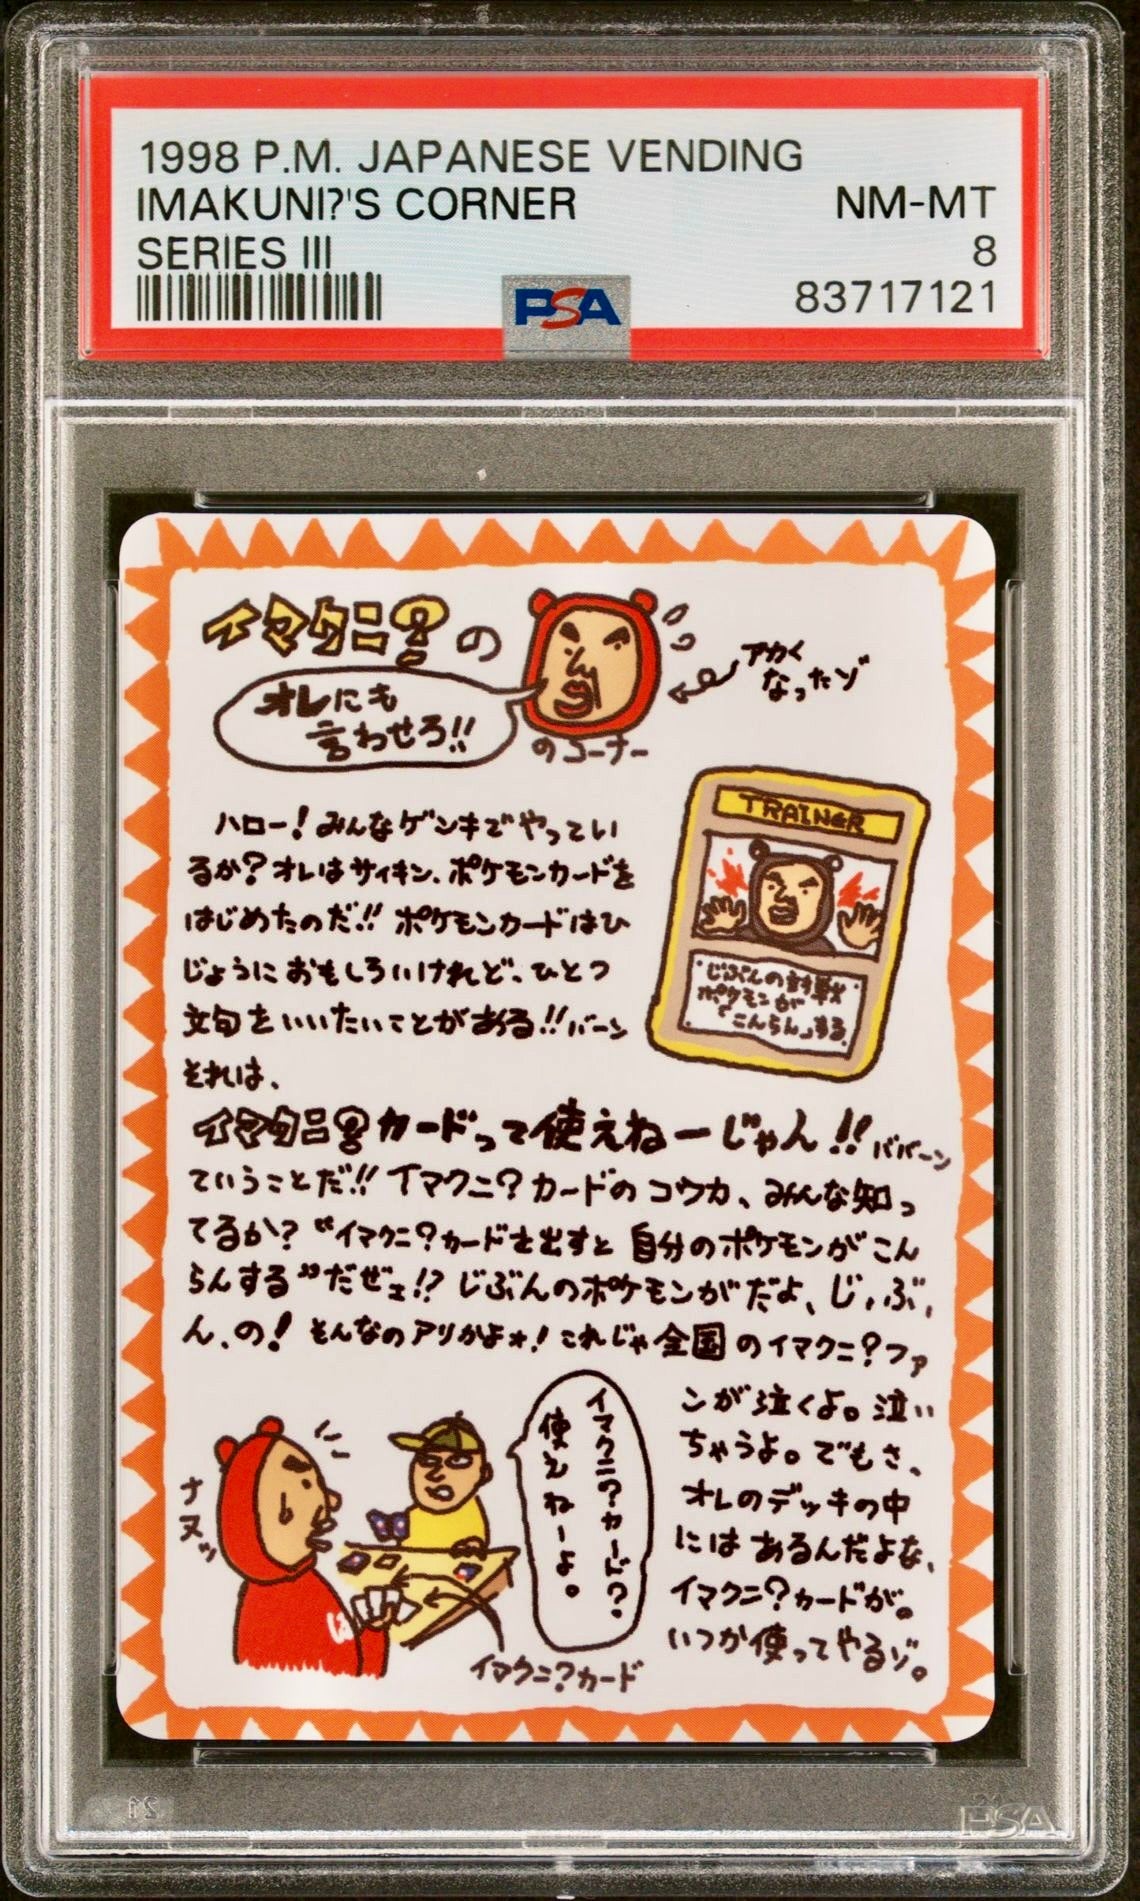 1998 P.M. JAPANESE VENDING
IMAKUNI?'S CORNER
NM-MT
SERIES III
8
PSA
83717121
イマクニ?の
オレにも
言わせろ!!
のコーナー
アカく
なったゾ
ハロー!みんなゲンキでやってい
るか?オレはサイキン、ポケモンカードを
はじめたのだ!!ポケモンカードはひ
じょうにおもしろいけれど、ひとつ
文句をいいたいことがある!!バーン
それは、
TRAINER
・じぶんの対戦
ポケモンが
「こんらん」する。
イマクニ?カードって使えねーじゃん!!ババーン
ていうことだ!!イマクニ?カードのコウカ、みんな知っ
てるか?“イマクニ?カードを出すと自分のポケモンがこん
らんする”だぜェ!?じぶんのポケモンがだよ、じ、ぶ、
ん、の!そんなのアリかよォ!これじゃ全国のイマクニ?ファ
ンが泣くよ。泣い
ちゃうよ。でもさ、
オレのデッキの中
にはあるんだよな、
イマクニ?カードが。
いつか使ってやるゾ。
ナヌッ
イマクニ?カード?
使えねーよ。
イマクニ?カード
PSA